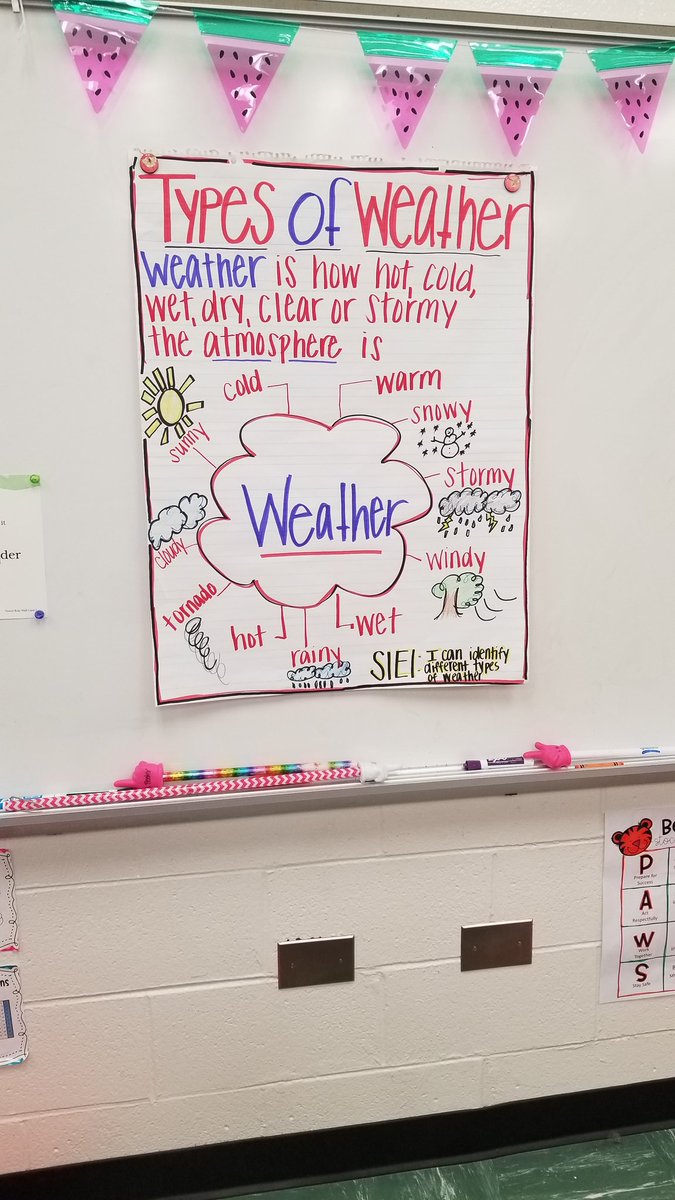 Types of Weather
Weather is how hot, cold,
wet, dry, clear or stormy
the atmosphere is
cold
warm
snowy
sunny
stormy
Weather
cloudy
windy
tornado
hot
wet
rainy
SIE1: I can identify
different types
of weather
der
P
Prepare for
Success
A
Act
Respectfully
W
Work
Together
S
Stay Safe